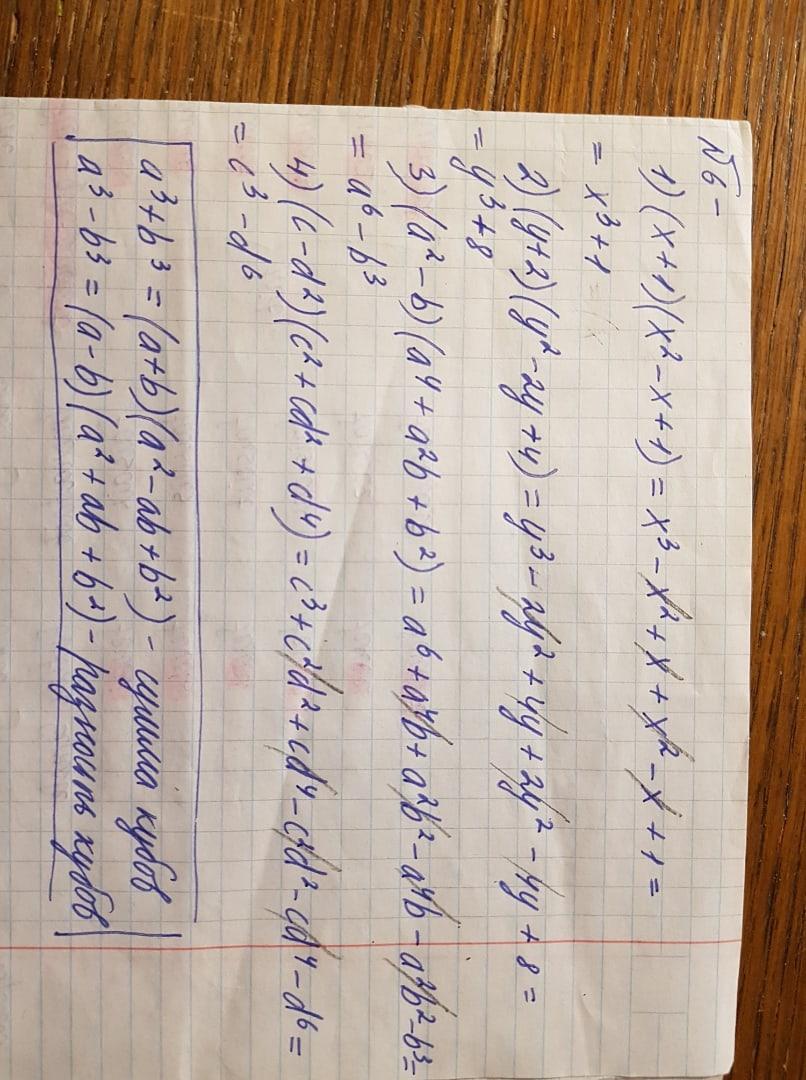 №6 -
1) (x+1)(x² - x + 1) = x³ - x² + x + x² - x + 1 =
= x³ + 1
2) (y+2)(y² - 2y + 4) = y³ - 2y² + 4y + 2y² - 4y + 8 =
= y³ + 8
3) (a² - b)(a⁴ + a²b + b²) = a⁶ + a⁴b + a²b² - a⁴b - a²b² - b³ =
= a⁶ - b³
4) (c - d²)(c² + cd² + d⁴) = c³ + c²d² + cd⁴ - c²d² - cd⁴ - d⁶ =
= c³ - d⁶
a³ + b³ = (a+b)(a² - ab + b²) - сумма кубов
a³ - b³ = (a-b)(a² + ab + b²) - разность кубов